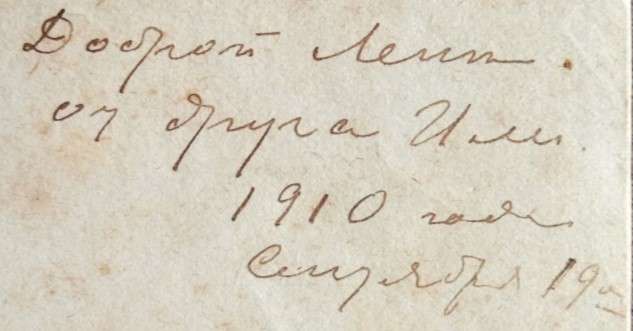 Доброй Лени.
от друга Или.
1910 года
Сентября 19го